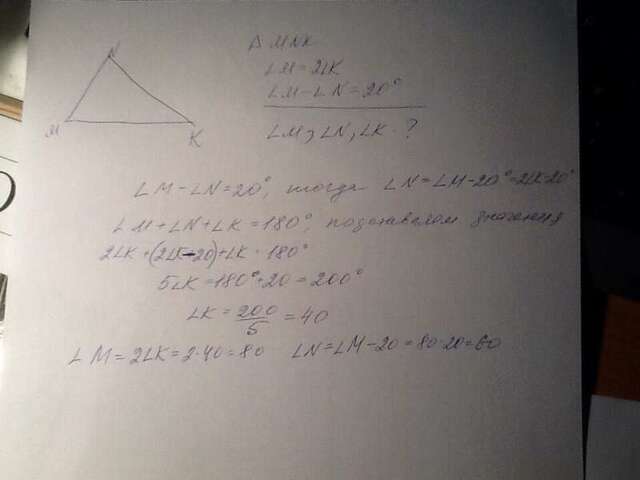 N
M
K
Δ MNK
∠M=2∠K
∠M-∠N=20°
∠M, ∠N, ∠K - ?
∠M-∠N=20°, тогда ∠N=∠M-20°=2∠K-20°
∠M+∠N+∠K=180°, подставляем значения
2∠K+(2∠K-20)+∠K=180°
5∠K=180°+20=200°
∠K=200/5=40
∠M=2∠K=2·40=80 ∠N=∠M-20=80-20=60